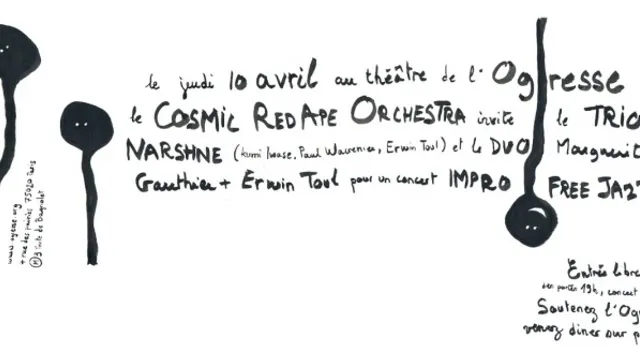 le jeudi 10 avril au théâtre de l'Ogresse
le COSMIC RED APE ORCHESTRA invite le TRIO
NARSHNE (Kumi Iwase, Paul Wacrenier, Erwin Toul) et le DUO Marguerit
Gauthier + Erwin Toul pour un concert IMPRO FREE JAZZ
www.ogresse.org
4 rue des prairies 75020 Paris
M 3 Porte de Bagnolet
Entrée libre
19h, concert
Soutenez l'Og
venez diner sur p